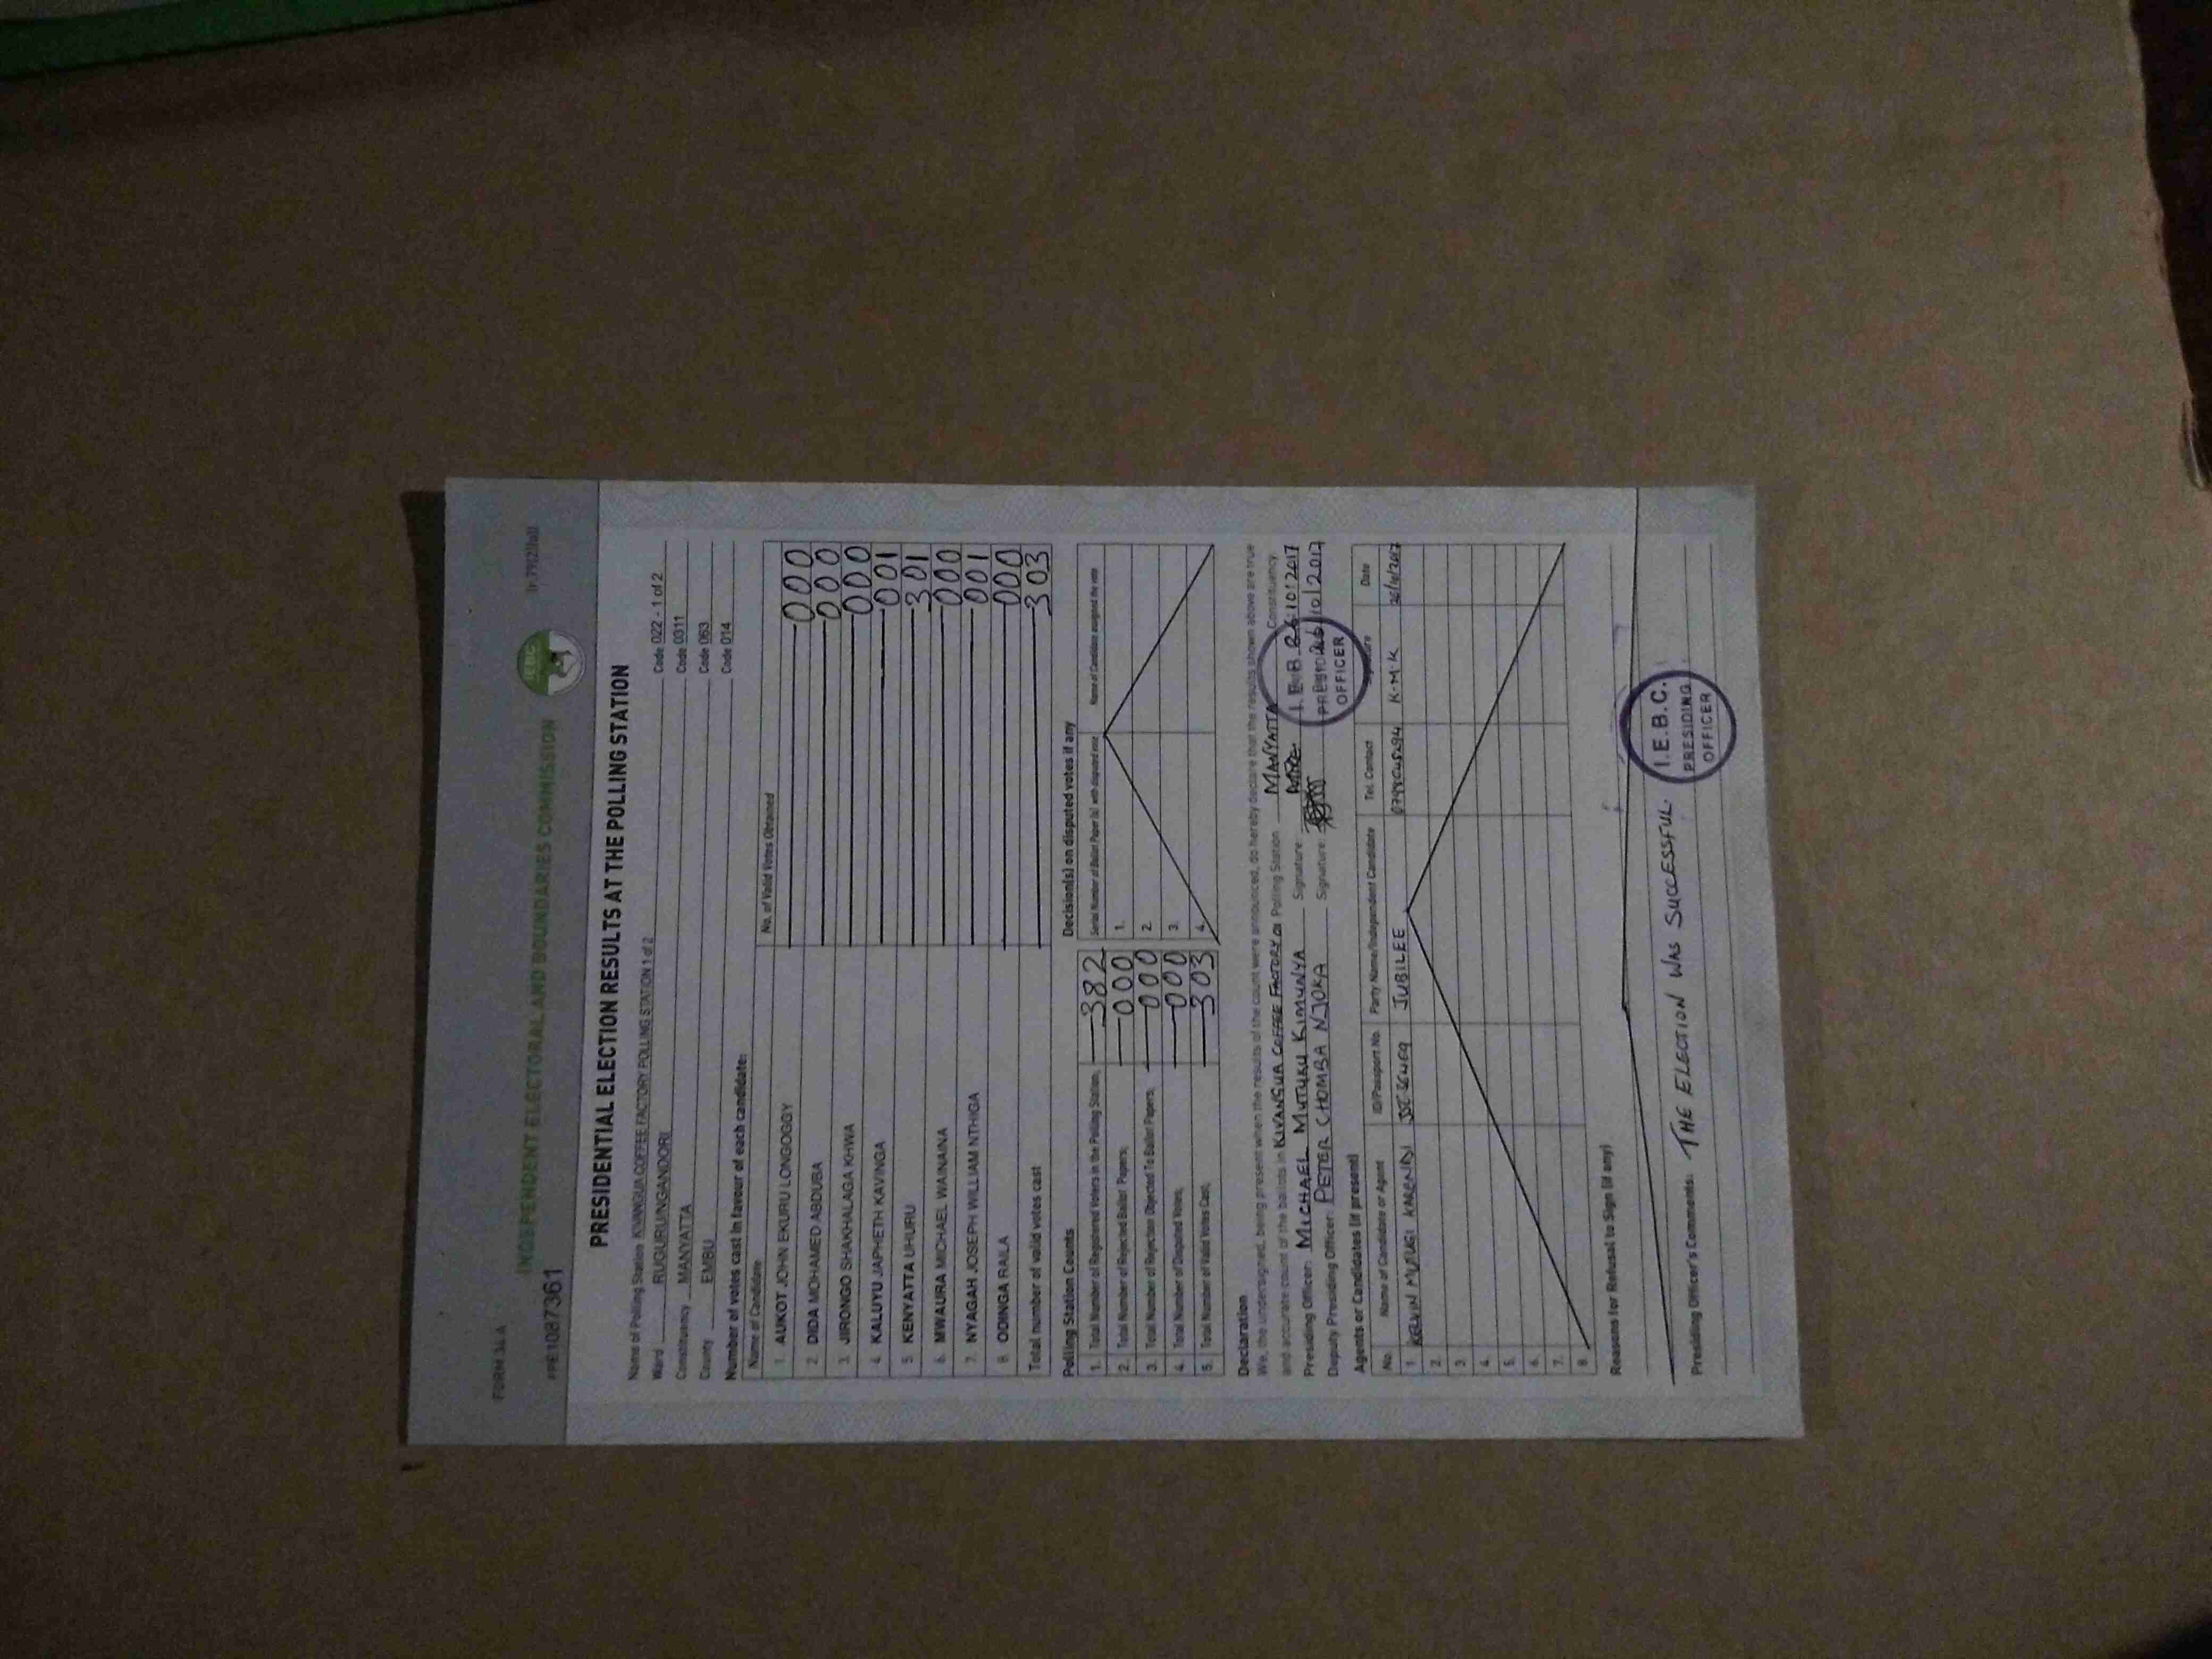 FORM 34A
INDEPENDENT ELECTORAL AND BOUNDARIES COMMISSION
PRESIDENTIAL ELECTION RESULTS AT THE POLLING STATION
Name of Polling Station KIVANGUA COFFEE FACTORY POLLING STATION 1 of 2 Code 022 - 1 of 2
Ward RUGURU/NGANDORI Code 0311
Constituency MANYATTA Code 063
County EMBU Code 014
Number of votes cast in favour of each candidate:
Name of Candidate No. of Valid Votes Obtained
1. AUKOT JOHN EKURU LONGOGGY 000
2. DIDA MOHAMED ABDUBA 000
3. JIRONGO SHAKHALAGA KHWA 000
4. KALUYU JAPHETH KAVINGA 001
5. KENYATTA UHURU 301
6. MWAURA MICHAEL WAINAINA 000
7. NYAGAH JOSEPH WILLIAM NTHIGA 001
8. ODINGA RAILA 000
Total number of valid votes cast 303
Polling Station Counts
1. Total Number of Registered Voters in the Polling Station; 382
2. Total Number of Rejected Ballot Papers; 000
3. Total Number of Rejection Objected To Ballot Papers; 000
4. Total Number of Disputed Votes; 000
5. Total Number of Valid Votes Cast; 303
Decision(s) on disputed votes if any
Serial Number of Ballot Paper (s) with disputed vote Name of Candidate assigned the vote
1.
2.
3.
4.
Declaration
We, the undersigned, being present when the results of the count were announced, do hereby declare that the results shown above are true
and accurate count of the ballots in KIVANGUA COFFEE FACTORY Polling Station MANYATTA Constituency.
Presiding Officer: MICHAEL MUTUKU KIMUNYA Signature: DATE: 26:10:2017
Deputy Presiding Officer: PETER CHOMBA NJOKA Signature: 26|10|2017
PRESIDING
OFFICER
Agents or Candidates (if present)
No. Name of Candidate or Agent ID/Passport No. Party Name/Independent Candidate Tel. Contact Signature Date
1. KELVIN MUUGI KARENDI JUBILEE K.M.K
2.
3.
4.
5.
6.
7.
8.
Reasons for Refusal to Sign (if any)
Presiding Officer's Comments: THE ELECTION WAS SUCCESSFUL.
I.E.B.C.
PRESIDING
OFFICER